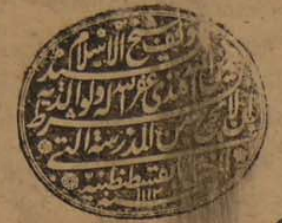 وقف شيخ الاسلام السيد
فيض الله افندي غفر الله له ولوالديه
بشرط ان لا يخرج من المدرسة التي
بقسطنطينية
١١١٢